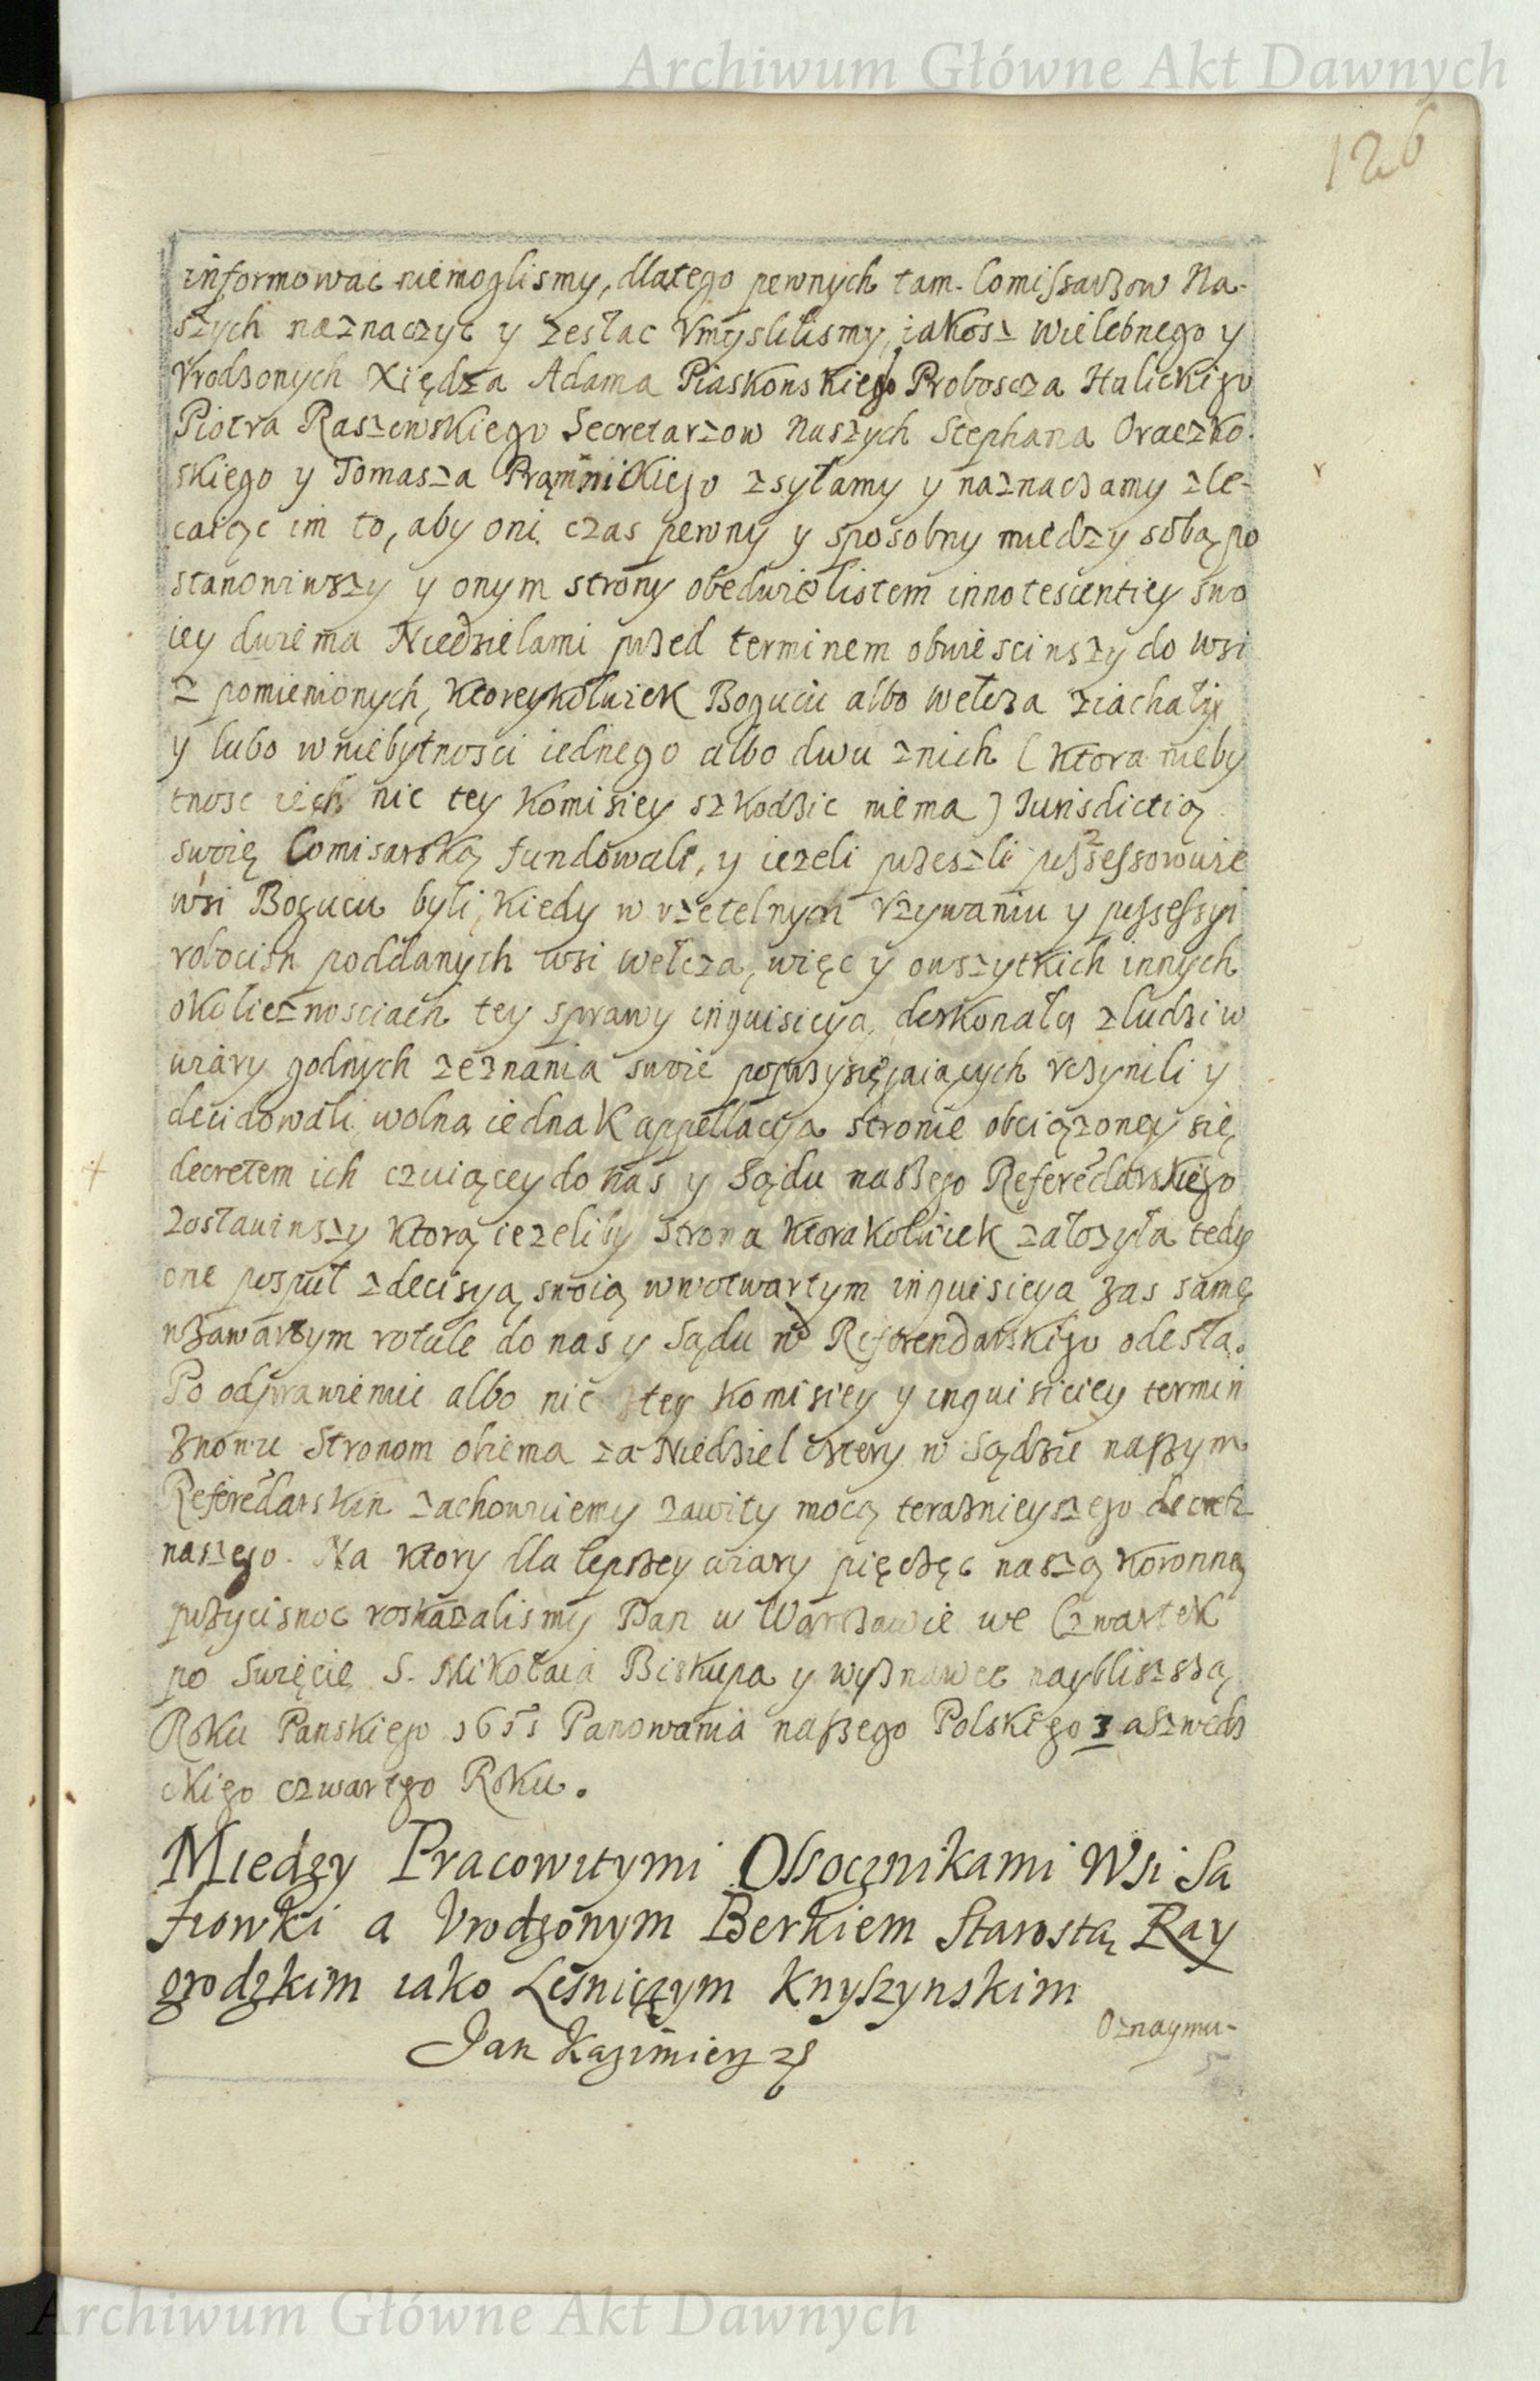 Archiwum Główne Akt Dawnych
126
informowac niemoglismy, dlatego pewnych tam Comissarzow Na-
szych naznaczyc y zesłac Vmyslilismy, iakosz Wielebnego y
Vrodzonych Xiędza Adama Piaskowskiego Proboscza Halickiego
Piotra Raszewskiego Secretarzow Naszych Stephana Oraczko-
skiego y Tomasza Prąmnickiego zsyłamy y naznaczamy zle-
caiąc im to, aby oni czas pewny y sposobny miedzy sobą po
stanowiwszy y onym strony obedwie listem innotescentiey swo
iey dwiema Niedzielami przed terminem obwiesciwszy do wsi
z pomienionych, ktoreykolwiek Bogucic albo Wełcza ziachaly
y lubo w niebytnosci iednego albo dwu znich (ktora nieby
tnosc ich nic tey Komisiey szkodzic niema) Jurisdictią
swoię Comisarską fundowali, y iezeli przeszli possessorowie
wsi Bogucic byli kiedy w rzetelnym Vzywaniu y possessyi
robocizn poddanych wsi Wełcza, więc y o wszytkich innych
okolicznosciach tey sprawy inquisicyą doskonałą z ludzi w
wiary godnych zeznania swoie poprzysięgaiących vczynili y
decidowali wolną iednak appellacyą stronie obciązoney się
decretem ich czuiącey do nas y Sądu naszego Referedarskiego
zostawiwszy ktorą iezeliby strona ktorakolwiek załozyła tedy
one pospuł z decisyą swoią w wotwartym inquisicyą zas samę
w zawartym rotule do nas y Sądu nō Referendarskiego odesłą.
Po odprawieniu albo nie tey Komisiey y inquisiciey termin
znowu Stronom obiema za Niedziel cztery w Sądzie naszym
Referedarskim zachowuiemy zawity mocą teraznieyszego decretu
naszego. Na ktory dla lepszey wiary pięczęc naszą koronną
przycisnoc roskazalismy Dan w Warszawie we Czwartek
po Swięcie S. Mikołaia Biskupa y wyznawce naybliszszą
Roku Panskiego 1651 Panowania naszego Polskiego 3 a szwedz
kiego czwartego Roku.
Miedzy Pracowitymi Ossocznikami Wsi Sa
łowki a Vrodzonym Berkiem Starostą Ray
grodzkim iako Lesniczym Knyszynskim
Jan Kazimierz
Oznaymu-
Archiwum Główne Akt Dawnych